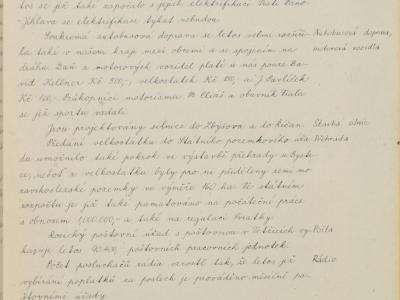 tos se již také započalo s jejich elektrifikací. Trati Brno-
Jihlava se elektrifikace týkat nebude.
Soukromá autobusová doprava se letos velmi rozšíři- Autobusová doprava,
la také v našem kraji mezi obcemi a se spojením na motorová vozidla
dráhu. Daň z motorových vozidel platí u nás pouze Da-
vid Kellner Kč 800,-, velkostatek Kč 150,- a J. Pavlíček
Kč 150,-. Průkopníci motorismu M. Eliáš a obuvník Fiala
se již sportu vzdali.
Jsou projektovány silnice do Zbýšova a do Říčan. Stavba silnic
Předání velkostatku do Státního pozemkového úřa- Přehrada
du umožnilo také pokrok ve výstavbě přehrady u Bystr-
ce, neboť z velkostatku byly pro ni přiděleny zemi mo-
ravskoslezské pozemky ve výměře 160 ha. Ve státním
rozpočtu je již také pamatováno na počáteční práce
s obnosem 1,000.000,- a také na regulaci Svratky.
Rosický poštovní úřad s poštovnou v Tetčicích vy- Pošta
kazuje letos 90.400,- poštovních pracovních jednotek.
Počet posluchačů rádia vzrostl tak, že letos již Rádio
vybírání poplatků za poslech je prováděno měsíčně po-
štovními úřady.